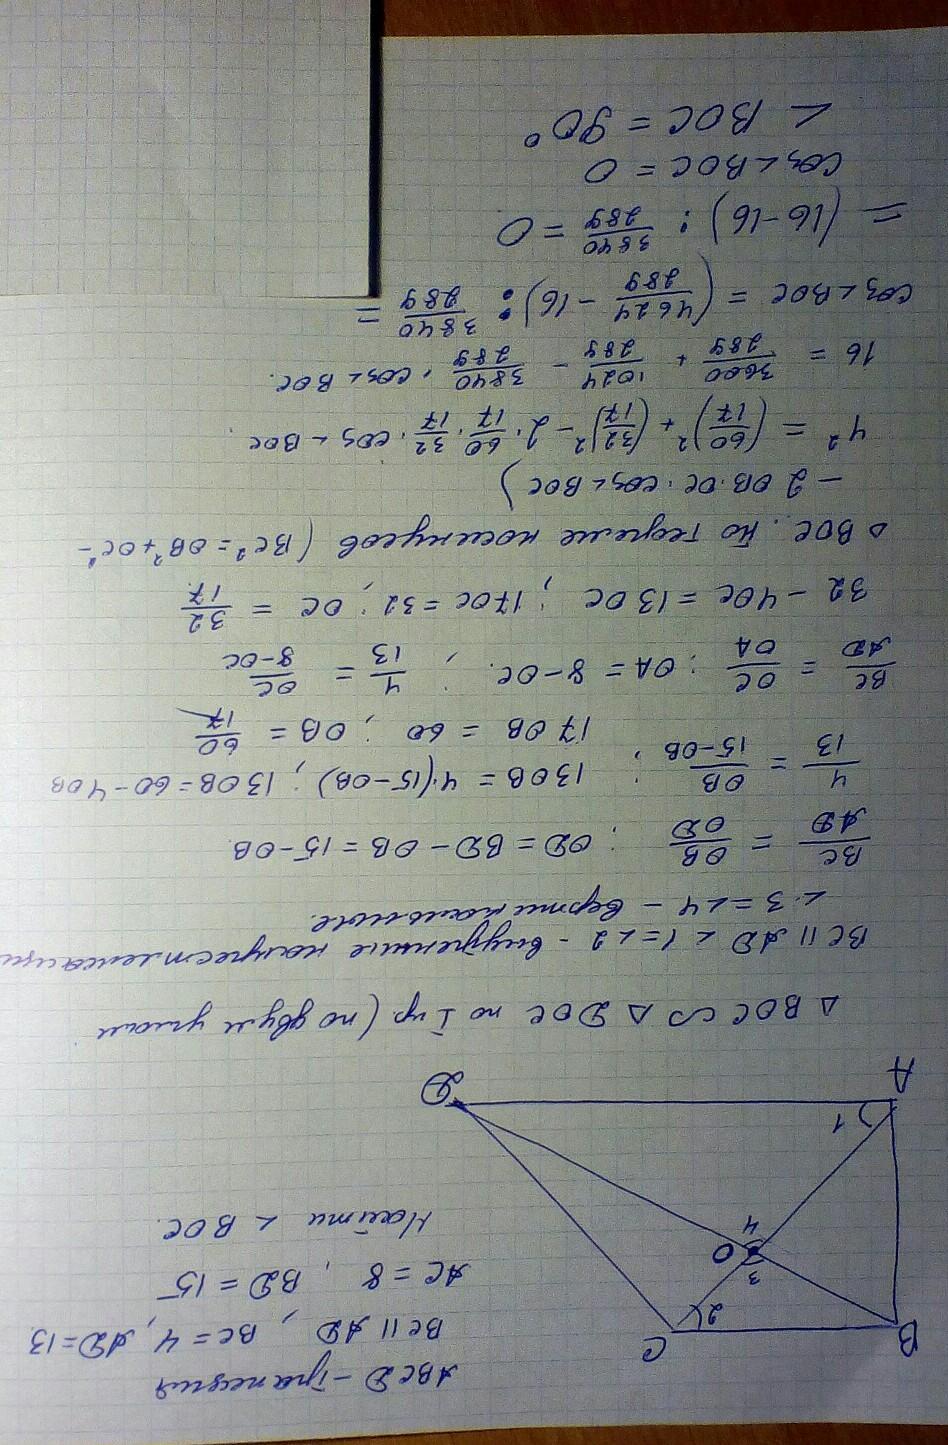 ABCD - трапеция
BC || AD, BC = 4, AD = 13
AC = 8, BD = 15
Найти ∠ BOC.
B
C
2
3
O
4
1
A
D
△ BOC ∽ △ DOC по I пр. (по двум углам
BC || AD ∠1=∠2 - внутренние накрест лежащие
∠3=∠4 - вертикальные.
BC/AD = OB/OD ; OD = BD - OB = 15-OB.
4/13 = OB/(15-OB) ; 13OB = 4·(15-OB) ; 13OB=60-4OB
17OB = 60 ; OB = 60/17
BC/AD = OC/OA ; OA = 8-OC. ; 4/13 = OC/(8-OC)
32 - 4OC = 13OC ; 17OC = 32 ; OC = 32/17.
△ BOC. По теореме косинусов (BC² = OB²+OC²-
- 2OB·OC·cos∠BOC)
4² = (60/17)² + (32/17)² - 2·60/17·32/17·cos∠BOC.
16 = 3600/289 + 1024/289 - 3840/289 · cos∠BOC.
cos∠BOC = (4624/289 - 16) : 3840/289 =
= (16-16) : 3840/289 = 0
cos∠BOC = 0
∠BOC = 90°